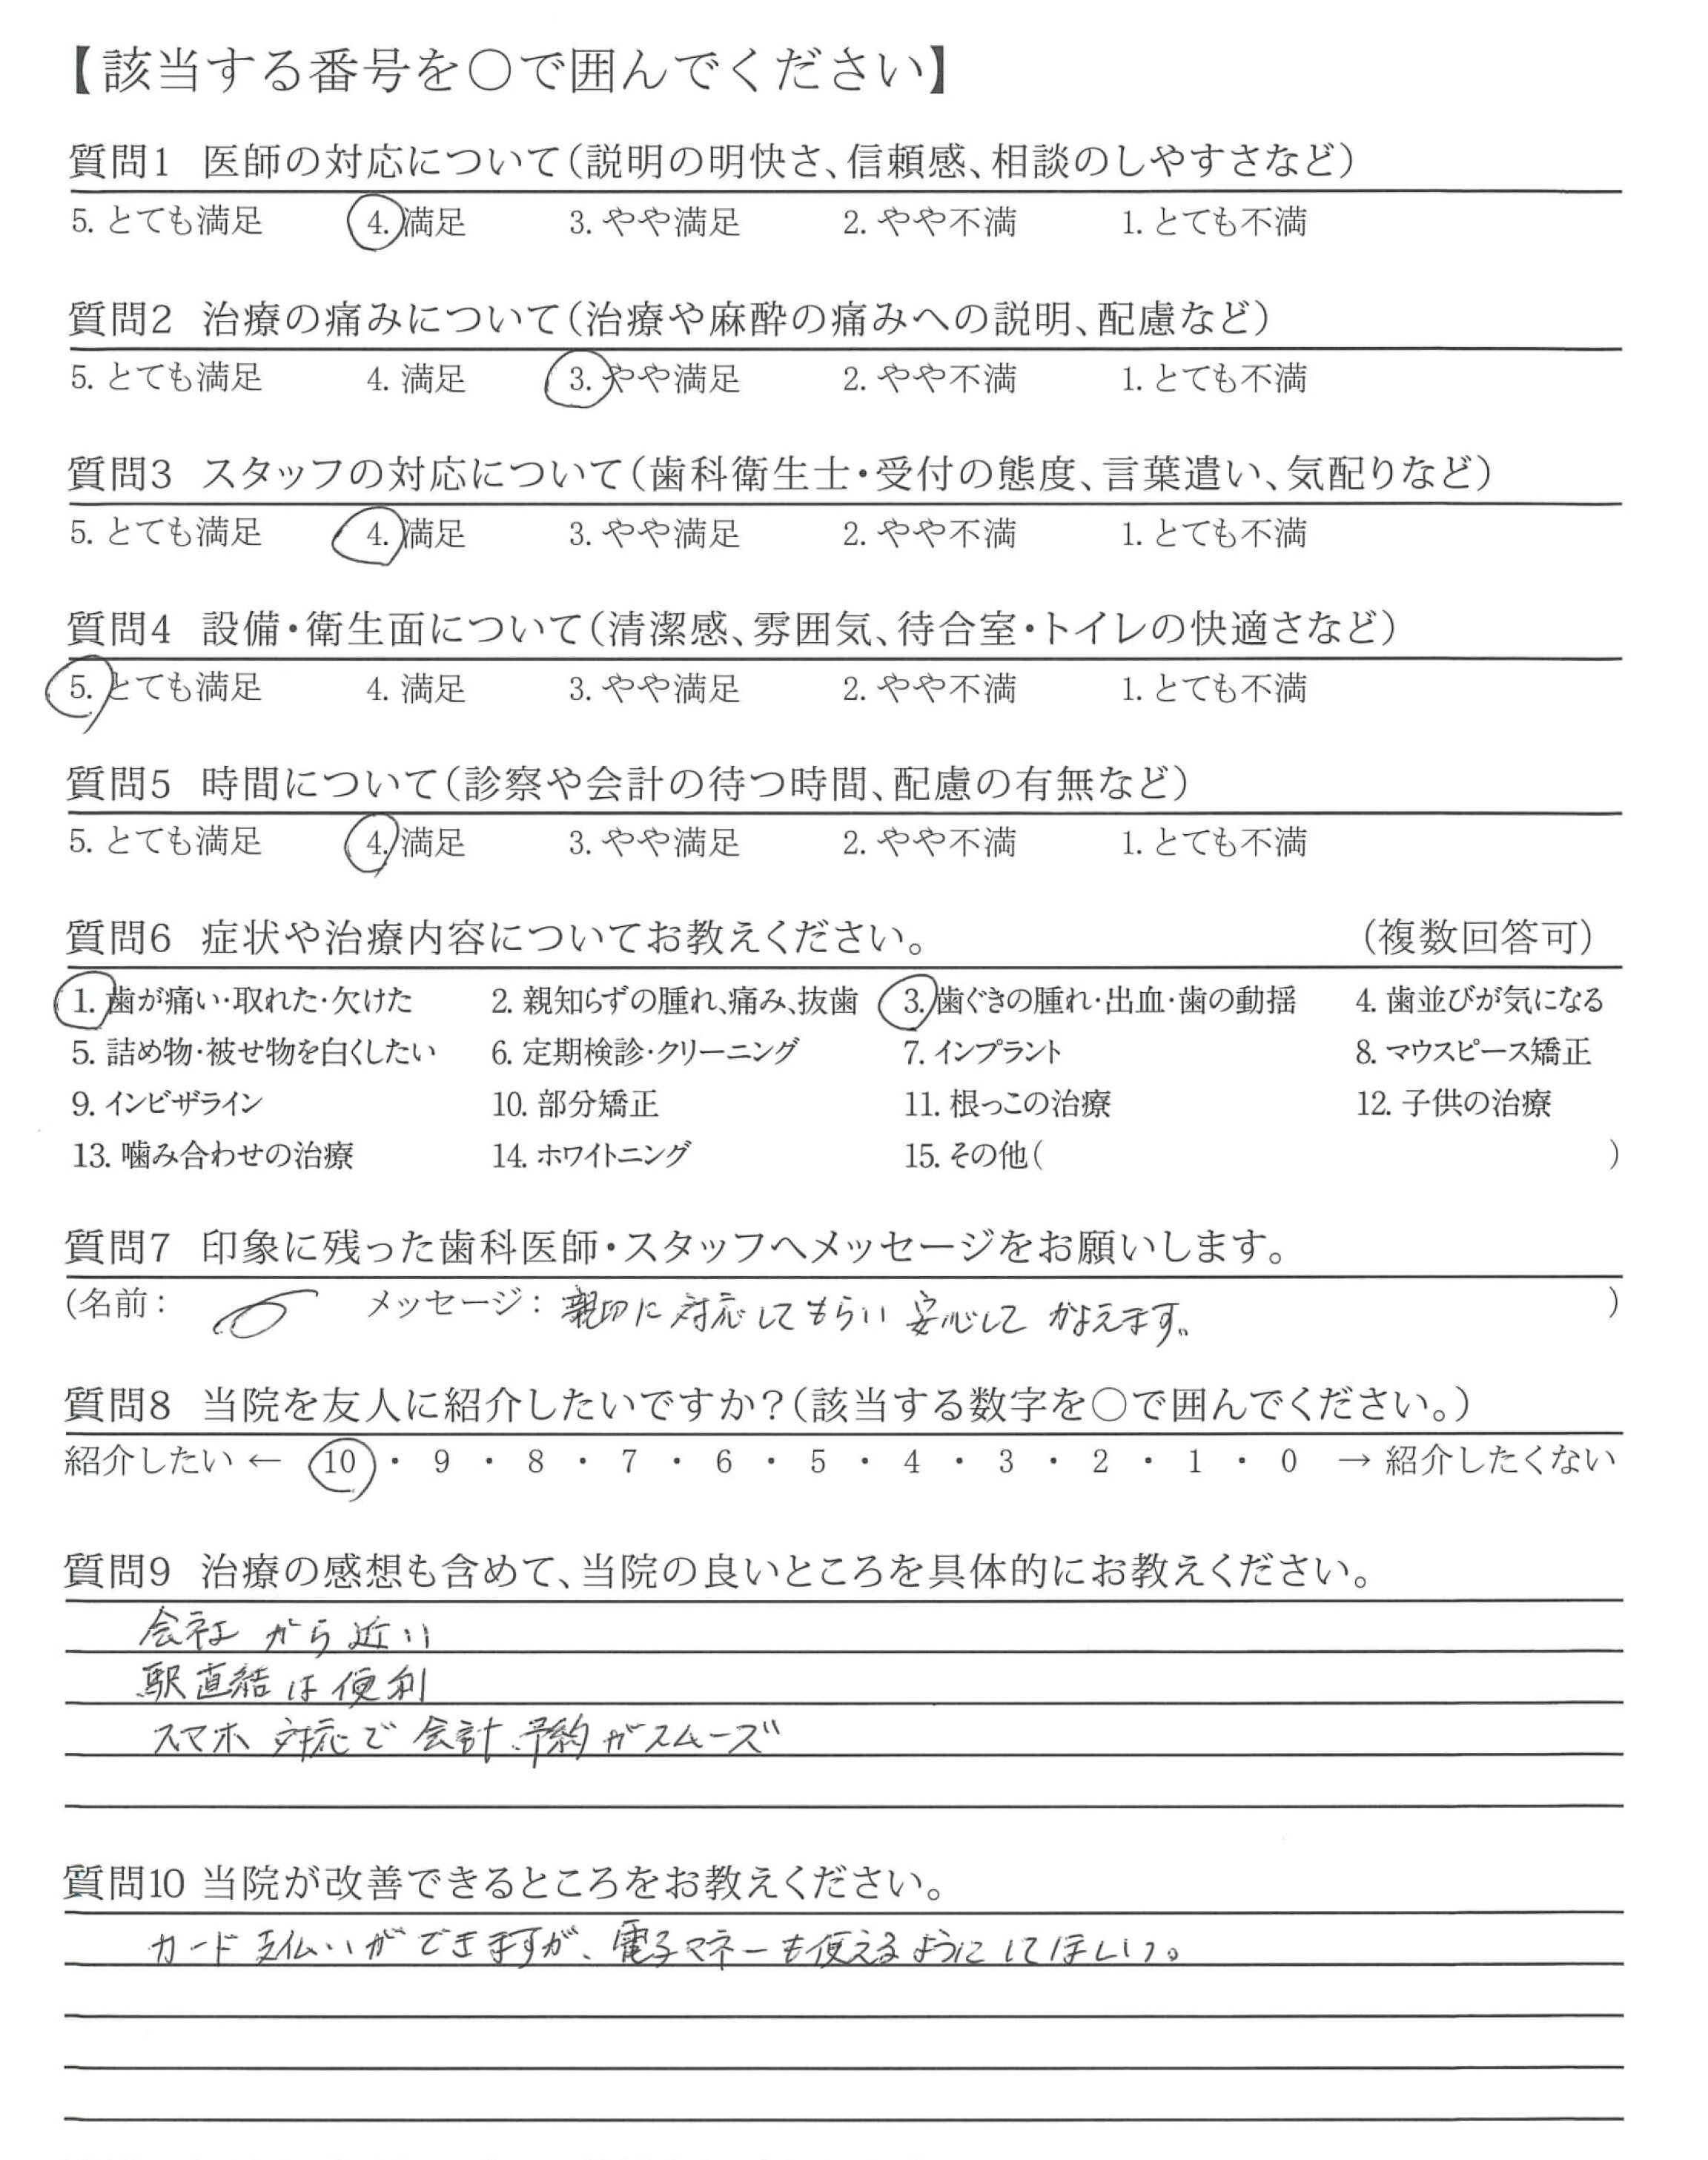 【該当する番号を○で囲んでください】
質問1 医師の対応について(説明の明快さ、信頼感、相談のしやすさなど)
5. とても満足 4. 満足 3. やや満足 2. やや不満 1. とても不満
質問2 治療の痛みについて(治療や麻酔の痛みへの説明、配慮など)
5. とても満足 4. 満足 3. やや満足 2. やや不満 1. とても不満
質問3 スタッフの対応について(歯科衛生士・受付の態度、言葉遣い、気配りなど)
5. とても満足 4. 満足 3. やや満足 2. やや不満 1. とても不満
質問4 設備・衛生面について(清潔感、雰囲気、待合室・トイレの快適さなど)
5. とても満足 4. 満足 3. やや満足 2. やや不満 1. とても不満
質問5 時間について(診察や会計の待つ時間、配慮の有無など)
5. とても満足 4. 満足 3. やや満足 2. やや不満 1. とても不満
質問6 症状や治療内容についてお教えください。 (複数回答可)
1. 歯が痛い・取れた・欠けた 2. 親知らずの腫れ、痛み、抜歯 3. 歯ぐきの腫れ・出血・歯の動揺 4. 歯並びが気になる
5. 詰め物・被せ物を白くしたい 6. 定期検診・クリーニング 7. インプラント 8. マウスピース矯正
9. インビザライン 10. 部分矯正 11. 根っこの治療 12. 子供の治療
13. 噛み合わせの治療 14. ホワイトニング 15. その他( )
質問7 印象に残った歯科医師・スタッフへメッセージをお願いします。
(名前: メッセージ: 親切に対応してもらい安心してかよえます。 )
質問8 当院を友人に紹介したいですか?(該当する数字を○で囲んでください。)
紹介したい ← 10 ・ 9 ・ 8 ・ 7 ・ 6 ・ 5 ・ 4 ・ 3 ・ 2 ・ 1 ・ 0 → 紹介したくない
質問9 治療の感想も含めて、当院の良いところを具体的にお教えください。
会社から近い
駅直結は便利
スマホ対応で会計、予約がスムーズ
質問10 当院が改善できるところをお教えください。
カード支払いができますが、電子マネーも使えるようにしてほしい。